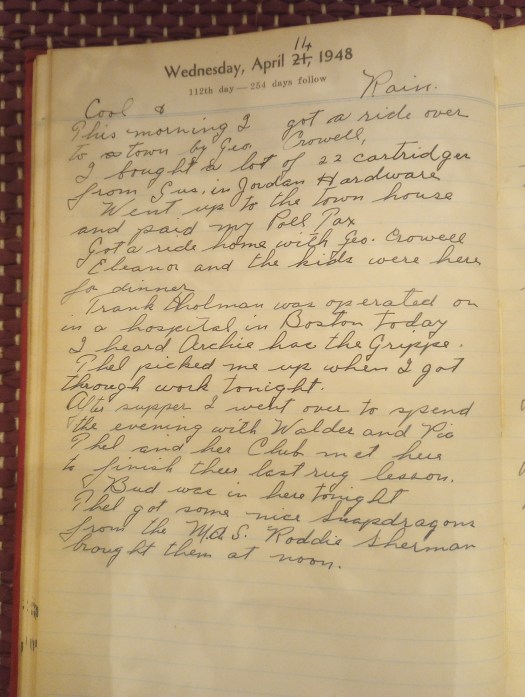 Wednesday, April 21, 14 1948
112th day — 254 days follow
Cool & Rain.
This morning I got a ride over
to town by Geo Crowell,
I bought a lot of 22 cartridges
from Gus. in Jordan Hardware
Went up to the town house
and paid my Poll Tax
Got a ride home with Geo. Crowell
Eleanor and the kids were here
fo dinner
Frank Tholman was operated on
in a hospital in Boston today
I heard Archie has the Grippe.
Thel picked me up when I got
through work tonight.
After supper I went over to spend
the evening with Walder and
Thel and her Club met here
to finish their last rug lesson.
Bud was in here tonight
Thel got some nice Snapdragons
from the M.A.S. Roddie Sherman
brought them at noon.